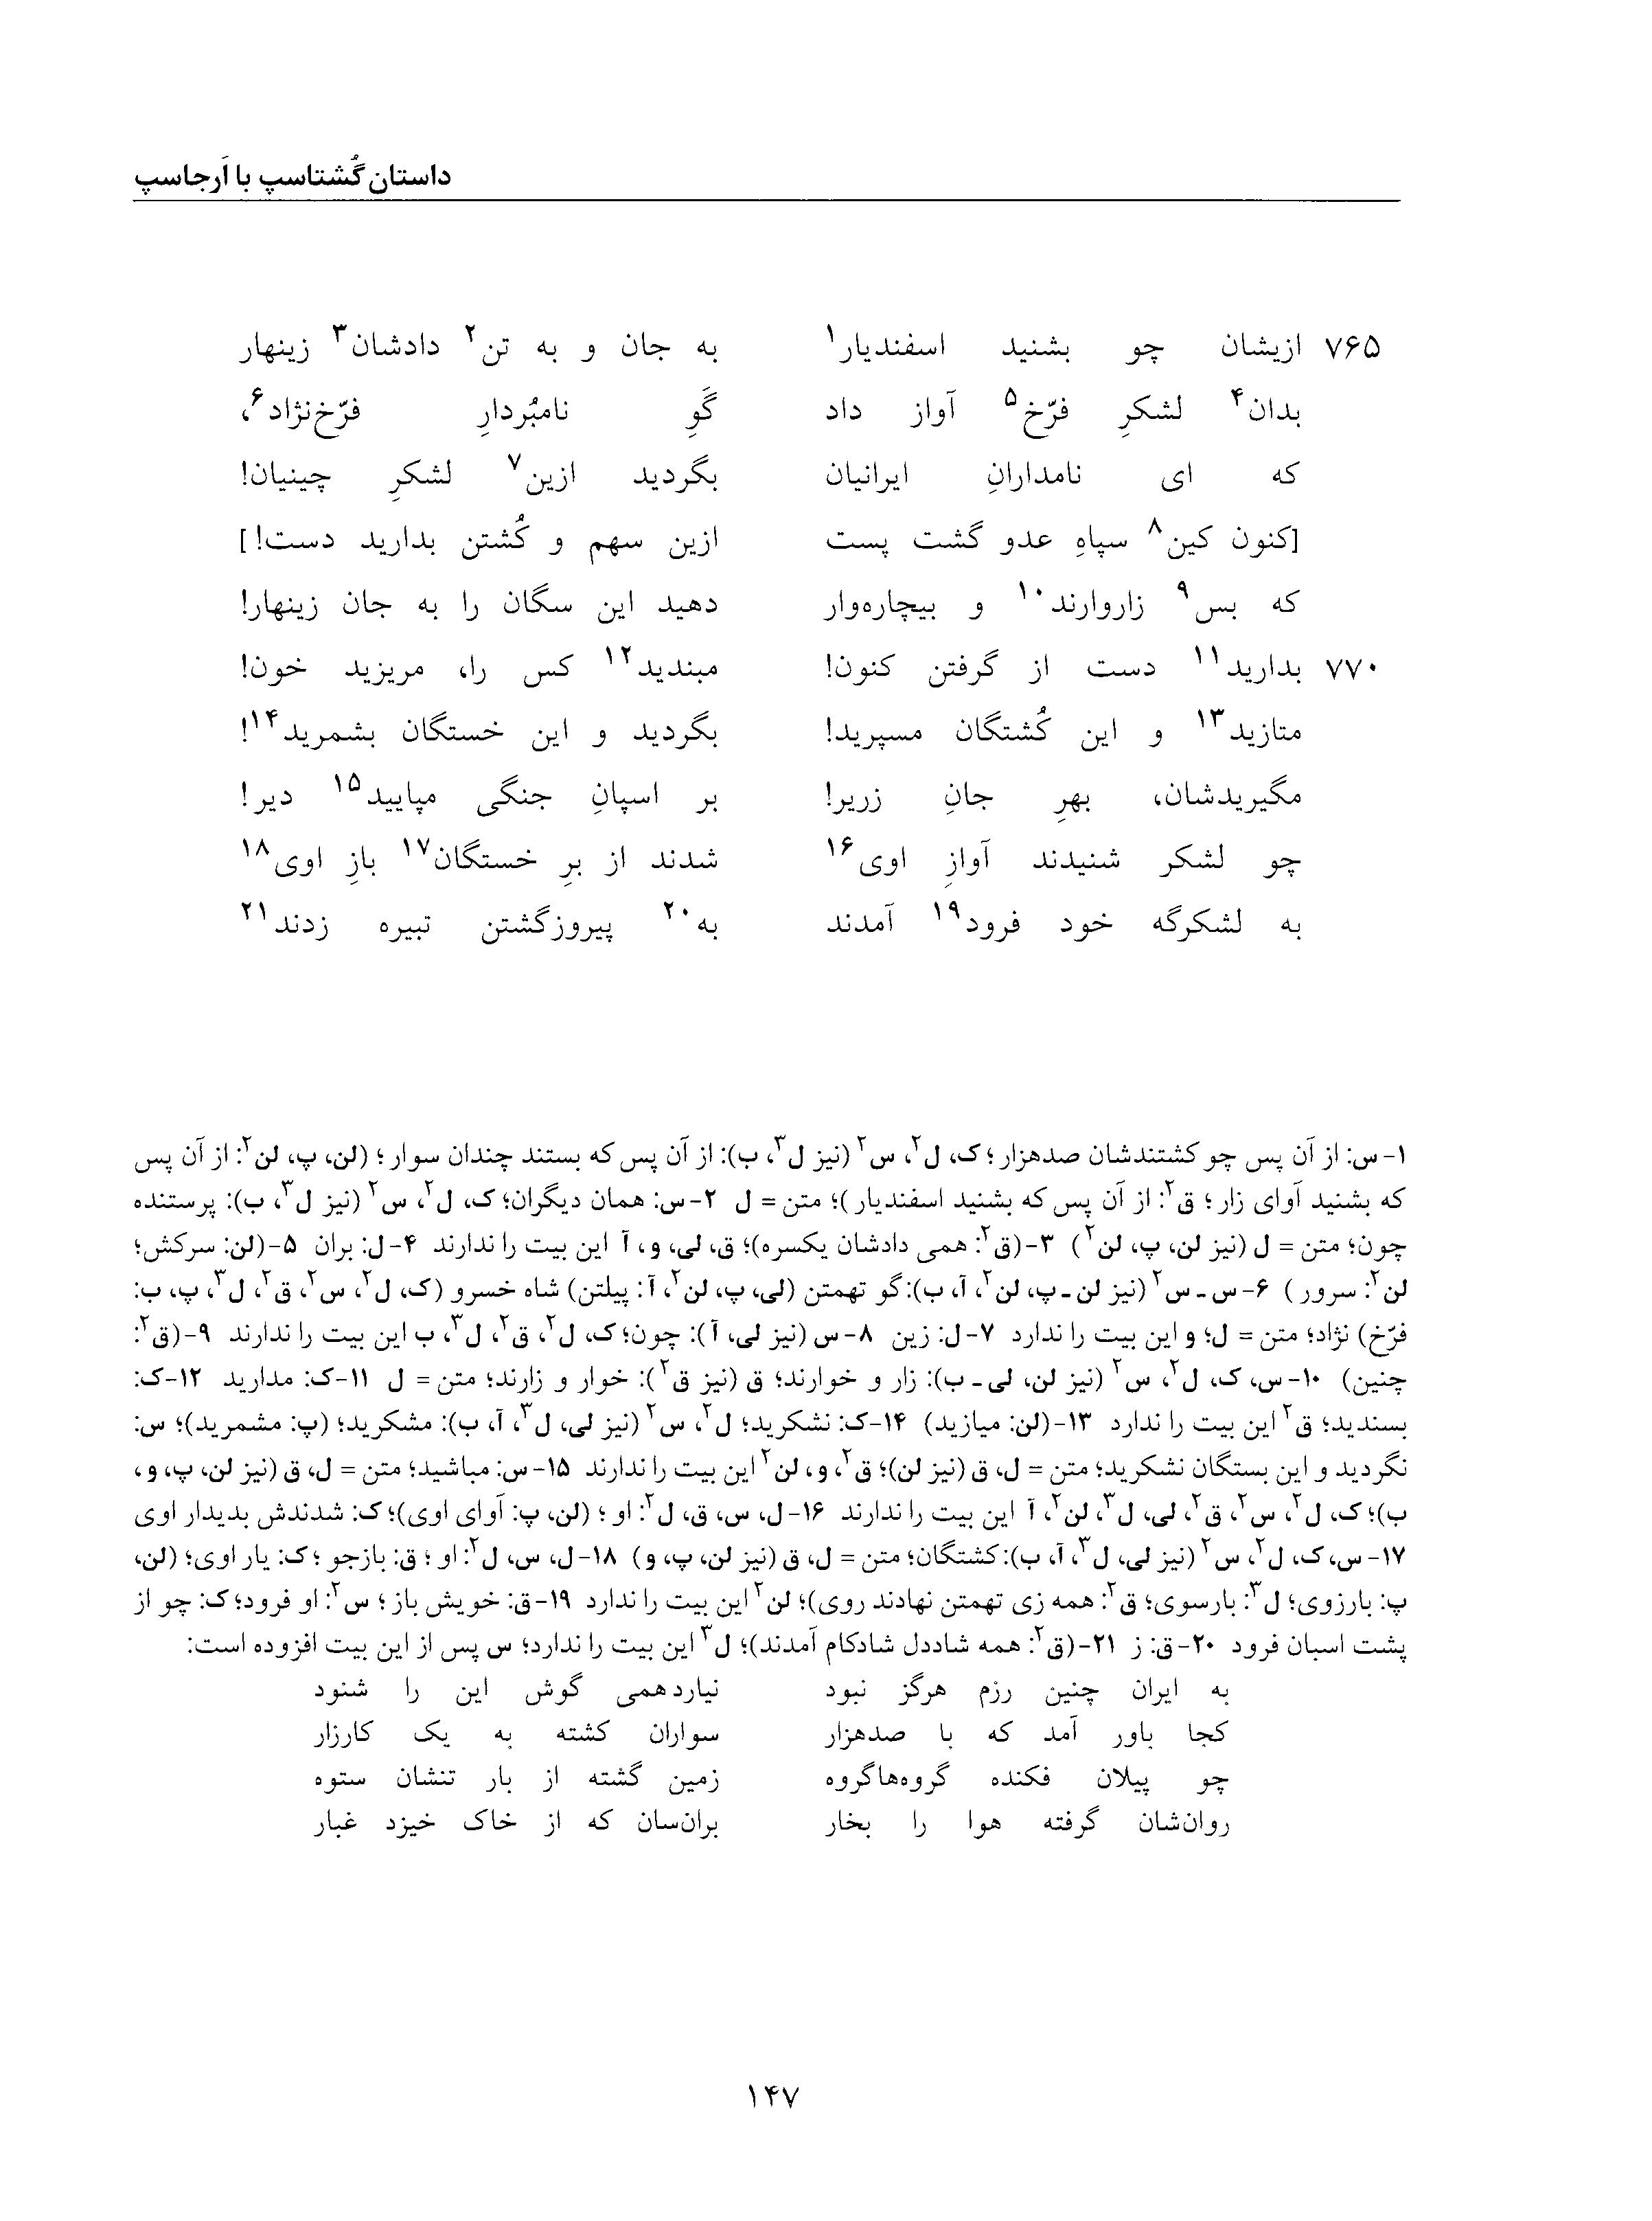 داستان گُشتاسپ با اَرجاسپ
۷۶۵ ازیشان چو بشنید اسفندیار۱ به جان و به تن۲ دادشان۳ زینهار
بدان۴ لشکرِ فرّخ۵ آواز داد گَوِ نامبُردارِ فرّخ‌نژاد۶،
که ای نامدارانِ ایرانیان بگردید ازین۷ لشکرِ چینیان!
[کنون کین۸ سپاهِ عدو گشت پست ازین سهم و کُشتن بدارید دست!]
که بس۹ زاروارند۱۰ و بیچاره‌وار دهید این سگان را به جان زینهار!
۷۷۰ بدارید۱۱ دست از گرفتن کنون! مبندید۱۲ کس را، مریزید خون!
متازید۱۳ و این کُشتگان مسپرید! بگردید و این خستگان بشمرید۱۴!
مگیریدشان، بهرِ جانِ زریر! بر اسپانِ جنگی مپایید۱۵ دیر!
چو لشکر شنیدند آوازِ اوی۱۶ شدند از برِ خستگان۱۷ بازِ اوی۱۸
به لشکرگه خود فرود۱۹ آمدند به۲۰ پیروزگشتن تبیره زدند۲۱
۱-س: از آن پس چو کشتندشان صدهزار؛ ک، ل۲، س۲ (نیز ل۳، ب): از آن پس که بستند چندان سوار؛ (لن، پ، لن۲: از آن پس
که بشنید آوای زار؛ ق۲: از آن پس که بشنید اسفندیار)؛ متن = ل ۲-س: همان دیگران؛ ک، ل۲، س۲ (نیز ل۳، ب): پرستنده
چون؛ متن = ل (نیز لن، پ، لن۲) ۳-(ق۲: همی دادشان یکسره)؛ ق، لی، و، آ این بیت را ندارند ۴-ل: بران ۵-(لن: سرکش؛
لن۲: سرور) ۶-س-س۲ (نیز لن-پ، لن۲، آ، ب): گو تهمتن (لی، پ، لن۲، آ: پیلتن) شاه خسرو (ک، ل۲، س۲، ق۲، ل۳، پ، ب:
فرّخ) نژاد؛ متن = ل؛ و این بیت را ندارد ۷-ل: زین ۸-س (نیز لی، آ): چون؛ ک، ل۲، ق۲، ل۳، ب این بیت را ندارند ۹-(ق۲:
چنین) ۱۰-س، ک، ل۲، س۲ (نیز لن، لی-ب): زار و خوارند؛ ق (نیز ق۲): خوار و زارند؛ متن = ل ۱۱-ک: مدارید ۱۲-ک:
بسندید؛ ق۲ این بیت را ندارد ۱۳-(لن: میازید) ۱۴-ک: نشکرید؛ ل۲، س۲ (نیز لی، ل۳، آ، ب): مشکرید؛ (پ: مشمرید)؛ س:
نگردید و این بستگان نشکرید؛ متن = ل، ق (نیز لن)؛ ق۲، و، لن۲ این بیت را ندارند ۱۵-س: مباشید؛ متن = ل، ق (نیز لن، پ، و،
ب)؛ ک، ل۲، س۲، ق۲، لی، ل۳، لن۲، آ این بیت را ندارند ۱۶-ل، س، ق، ل۲: او؛ (لن، پ: آوای اوی)؛ ک: شدندش بدیدار اوی
۱۷-س، ک، ل۲، س۲ (نیز لی، ل۳، آ، ب): کشتگان؛ متن = ل، ق (نیز لن، پ، و) ۱۸-ل، س، ل۲: او؛ ق: بازجو؛ ک: یار اوی؛ (لن،
پ: بارزوی؛ ل۳: بارسوی؛ ق۲: همه زی تهمتن نهادند روی)؛ لن۲ این بیت را ندارد ۱۹-ق: خویش باز؛ س۲: او فرود؛ ک: چو از
پشت اسبان فرود ۲۰-ق: ز ۲۱-(ق۲: همه شاددل شادکام آمدند)؛ ل۳ این بیت را ندارد؛ س پس از این بیت افزوده است:
به ایران چنین رزم هرگز نبود نیارد همی گوش این را شنود
کجا باور آمد که با صدهزار سواران کشته به یک کارزار
چو پیلان فکنده گروه‌هاگروه زمین گشته از بار تنشان ستوه
روان‌شان گرفته هوا را بخار بران‌سان که از خاک خیزد غبار
۱۴۷